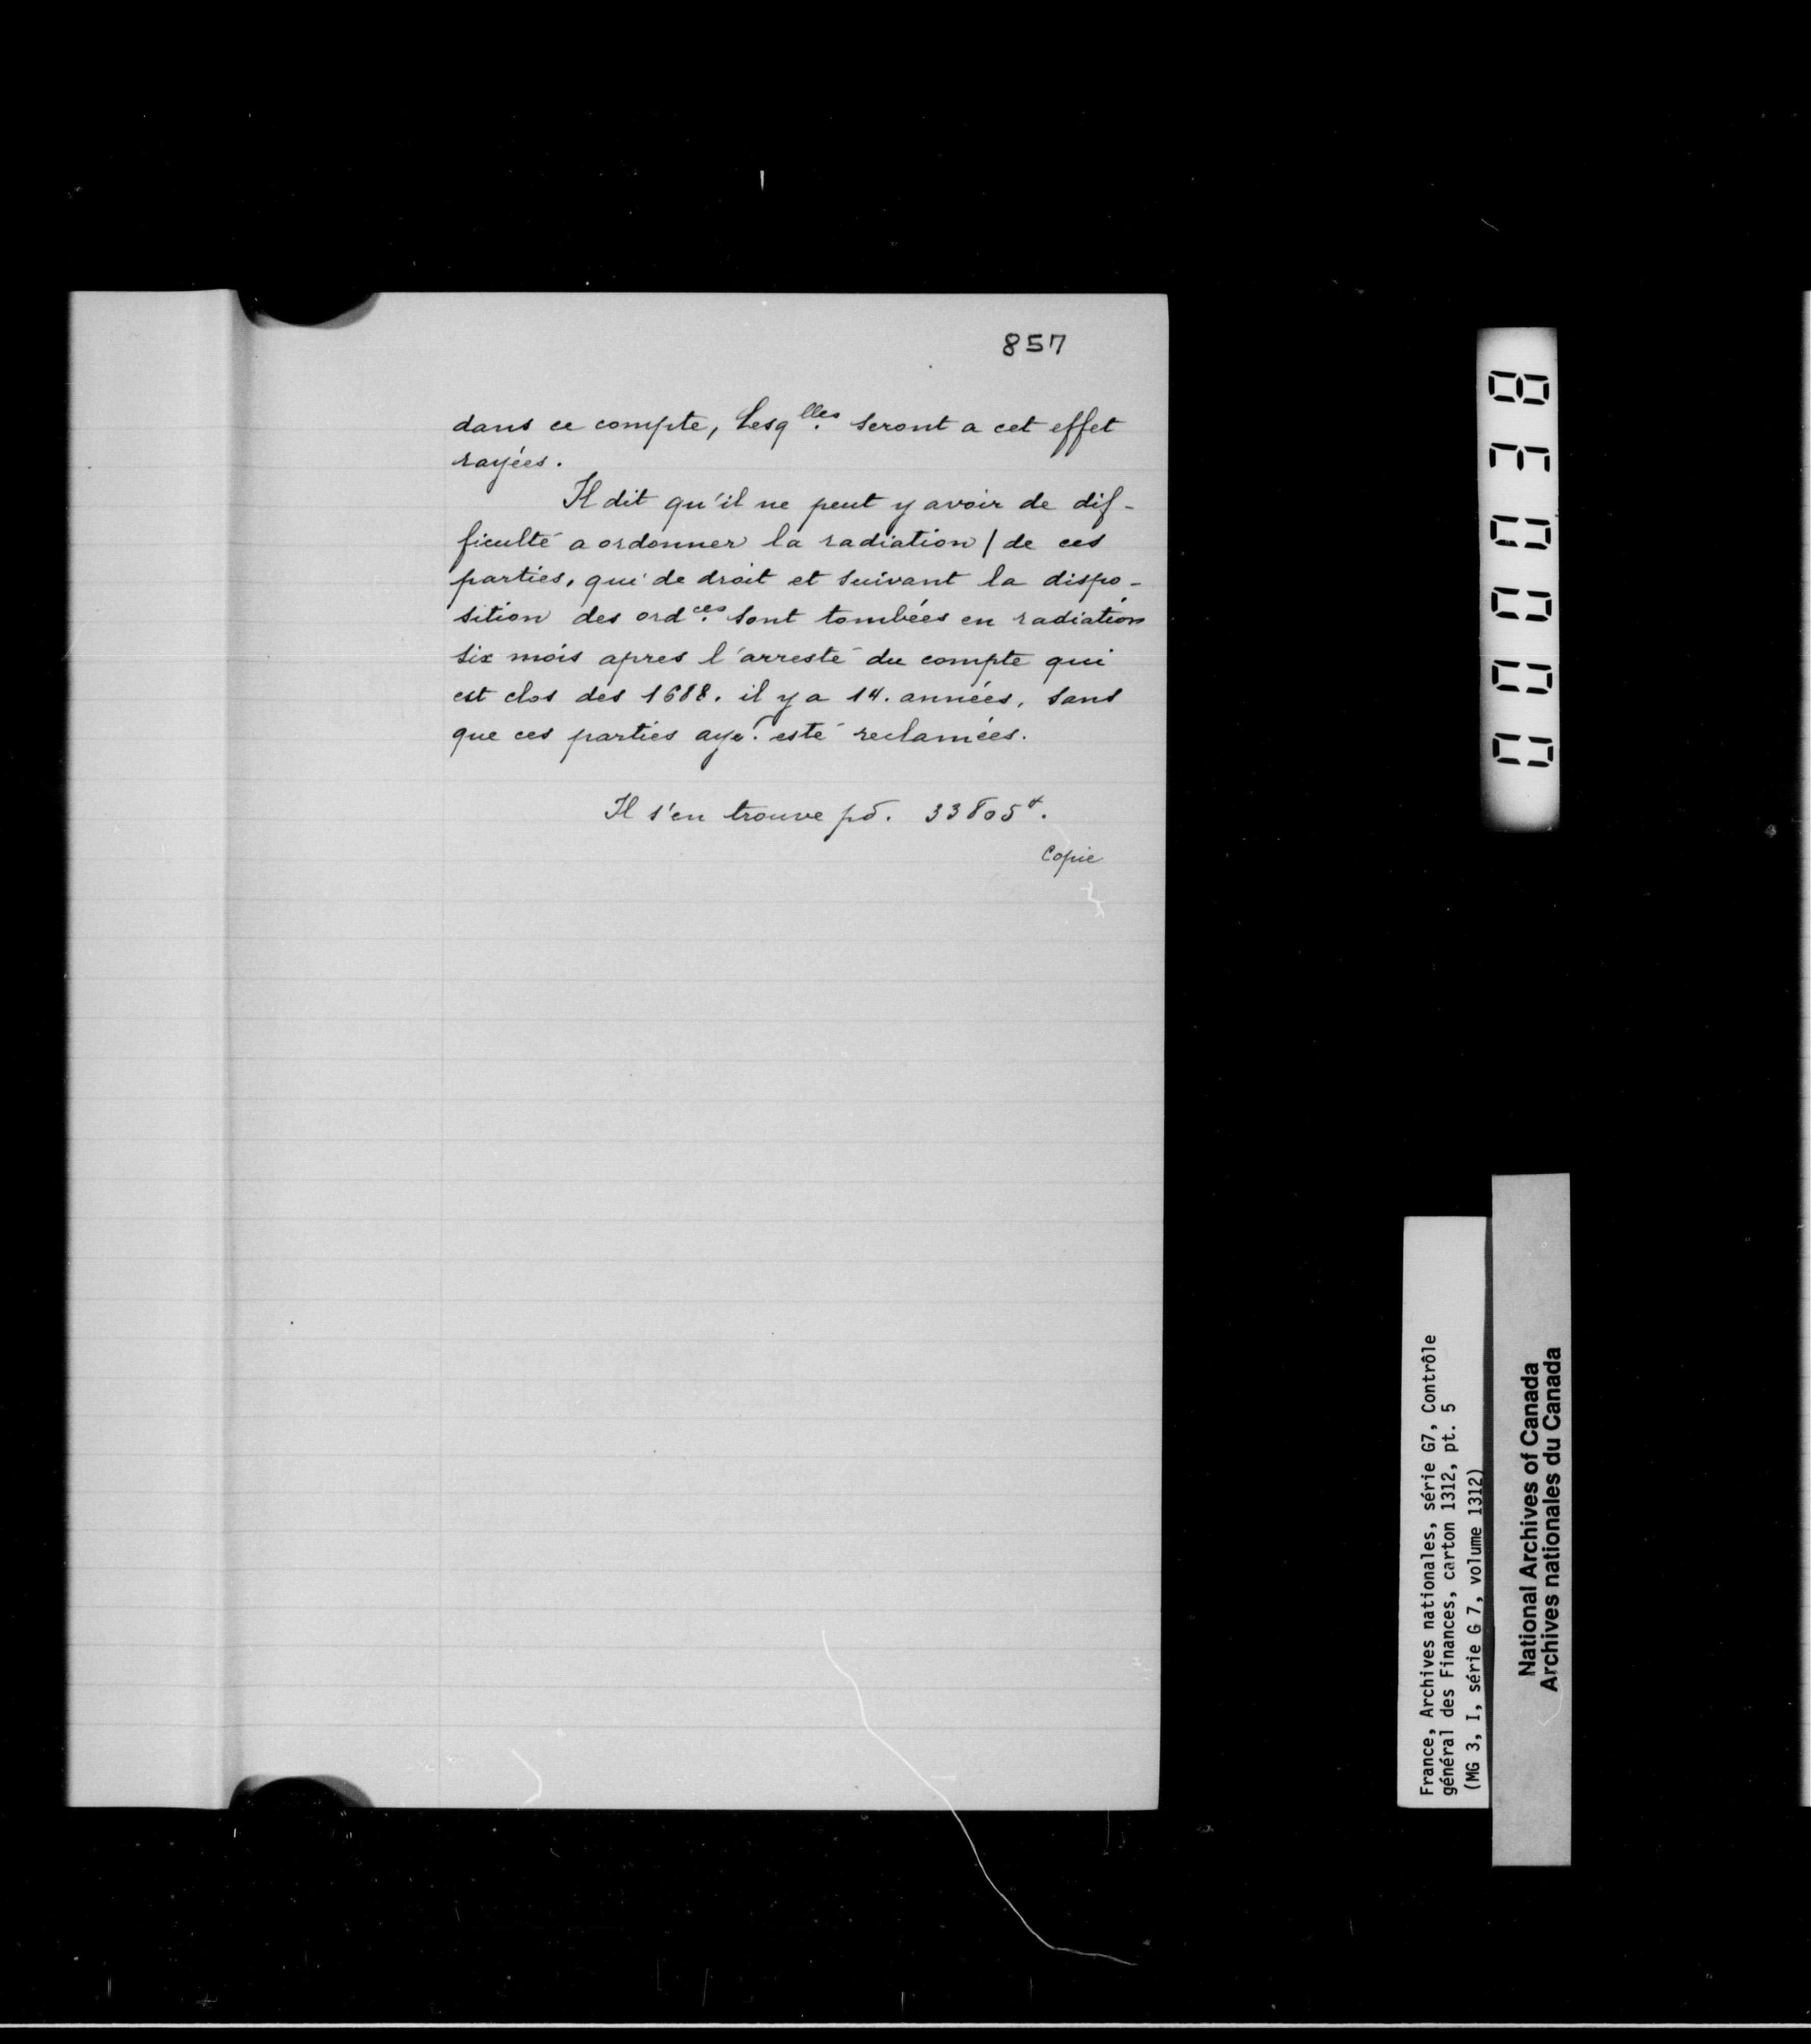 857
dans ce compte, Lesq.lles seront a cet effet
rayées.
Il dit qu'il ne peut y avoir de dif-
ficulté a ordonner la radiation / de ces
parties, qui de droit et suivant la dispo-
sition des ord.ces sont tombées en radiation
six mois apres l'arresté du compte qui
est clos des 1688. il y a 14. années, sans
que ces parties aye.t esté reclamées.
Il s'en trouve po. 33805#.
Copie
000038
France, Archives nationales, série G7, Contrôle
général des Finances, carton 1312, pt. 5
(MG 3, I, série G 7, volume 1312)
National Archives of Canada
Archives nationales du Canada